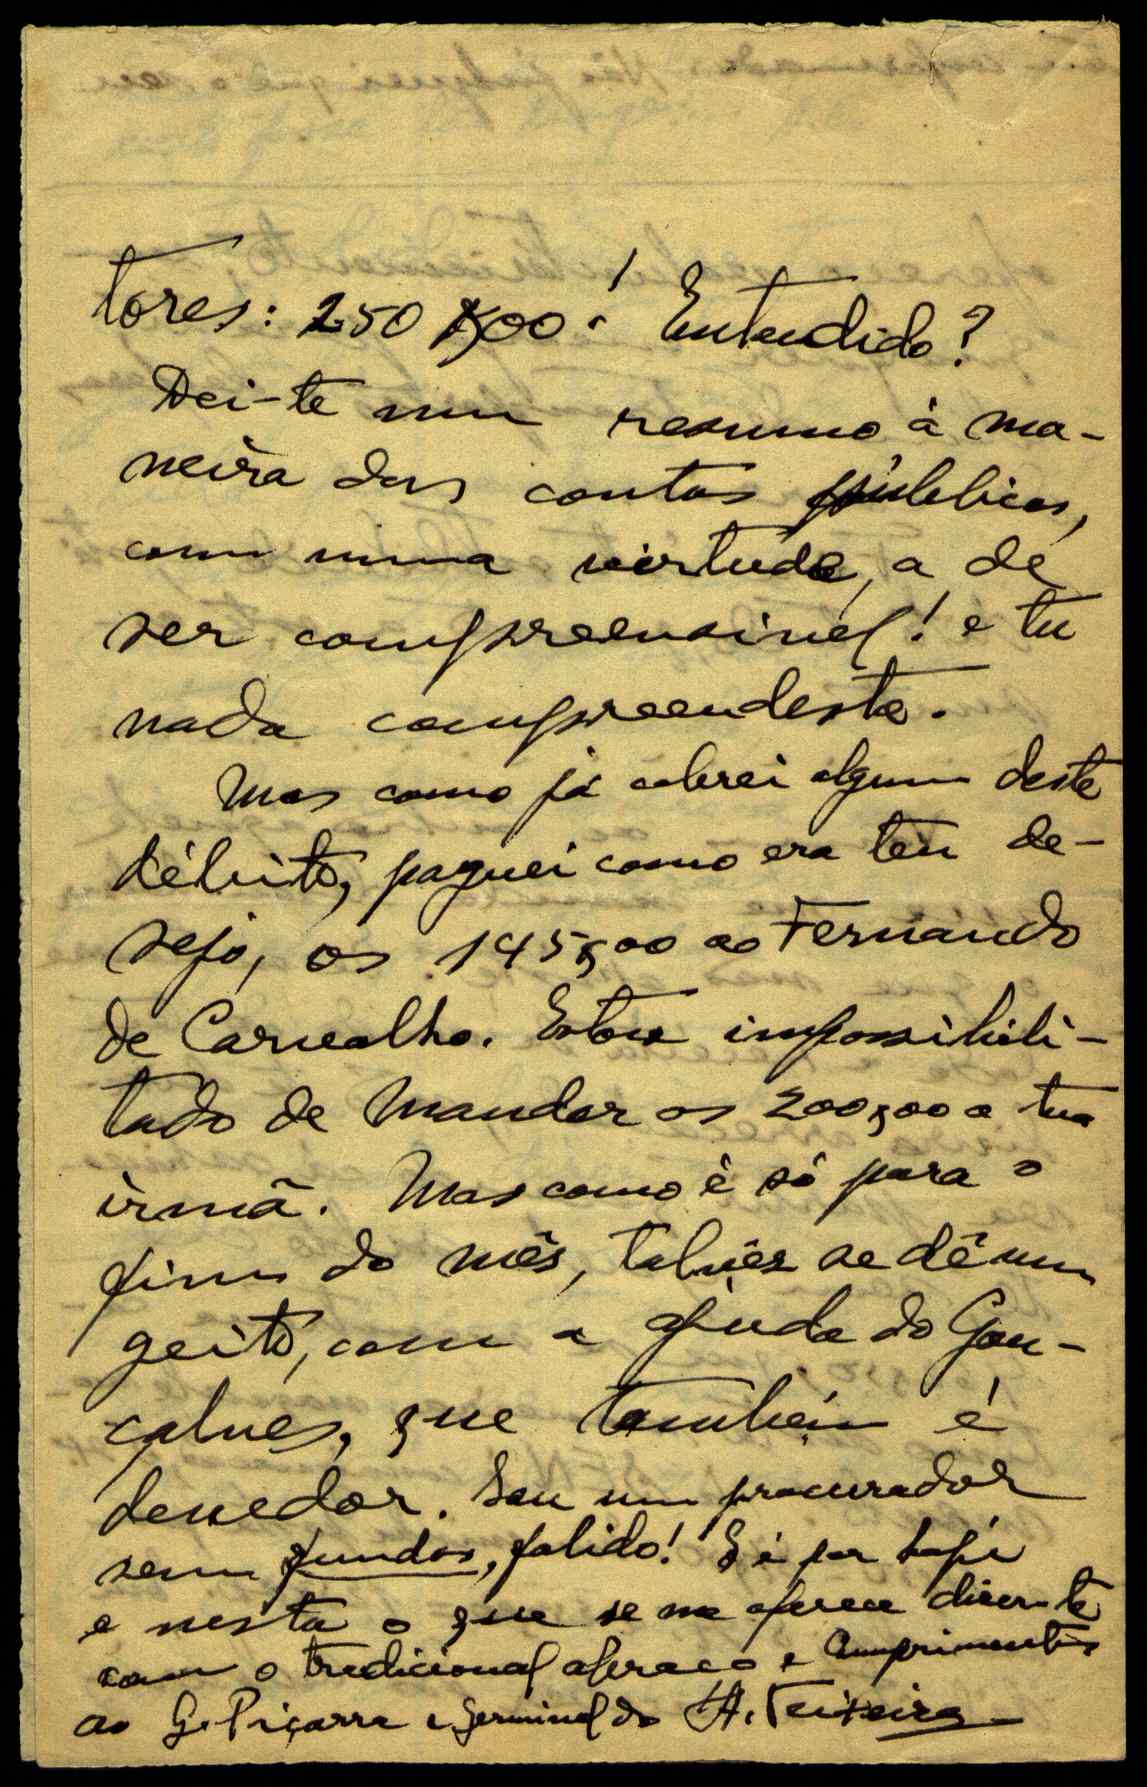 tores: 250$00! Entendido?
Dei-te um resumo à ma-
neira das contas públicas,
com uma virtude, a de
ser compreensível! e tu
nada compreendeste.
Mas como já cobrei algum deste
débito, paguei como era teu de-
sejo, os 145$00 ao Fernando
de Carvalho. Estou impossibili-
tado de mandar os 200$00 a tua
irmã. Mas como é só para o
fim do mês, talvês se dê um
geito, com a ajuda do Gon-
çalves, que também é
devedor. Sou um procurador
sem fundos, falido! E é por hoje
e nesta o que se me oferece dizer-te
com o tradicional abraço e cumprimentos
ao G. Piçarra e Germinal do A. Teixeira